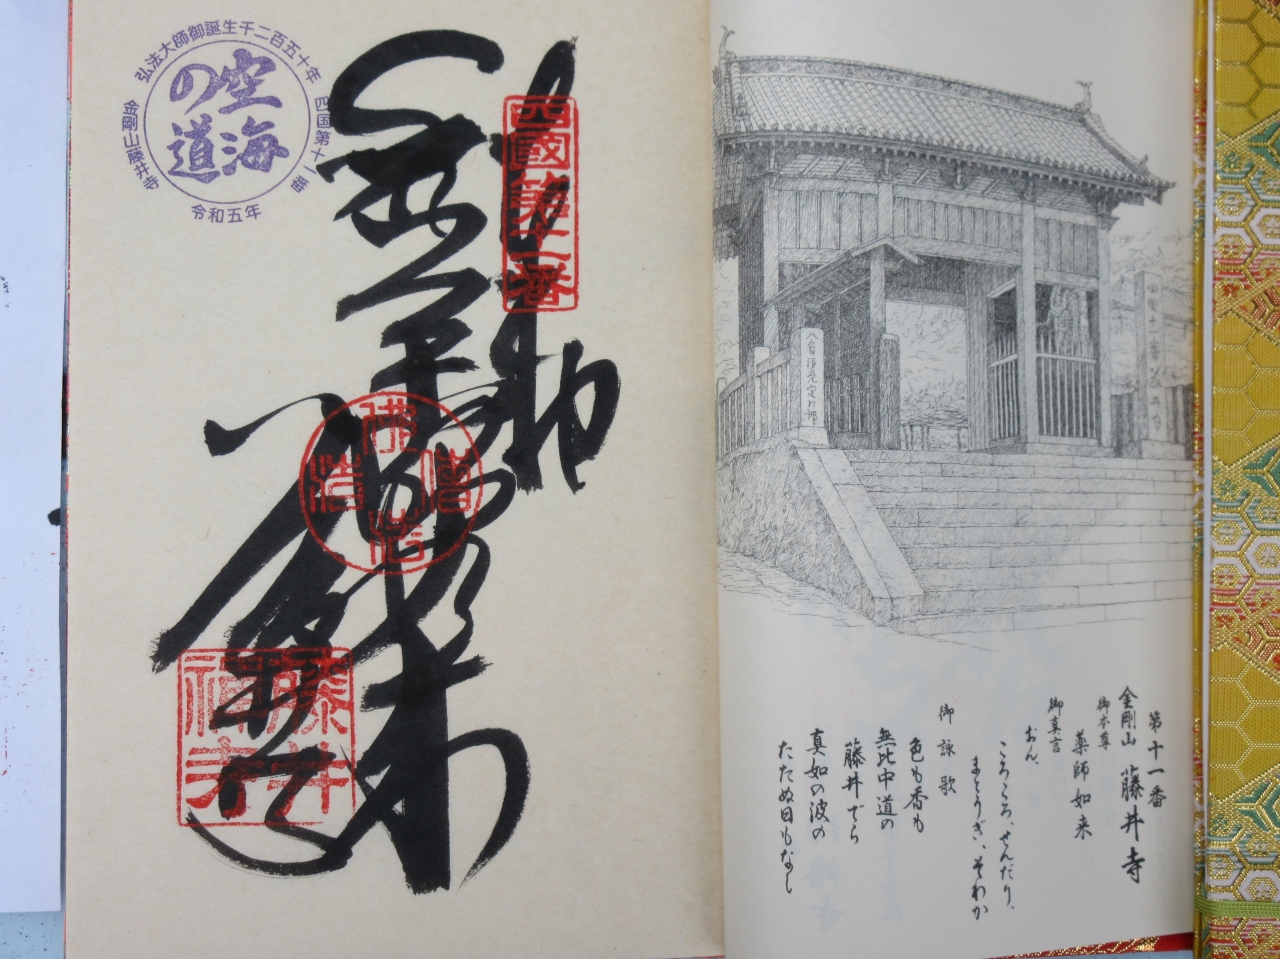 弘法大師御誕生千二百五十年
四国第十一番
金剛山藤井寺
令和五年
空海
の道
四國第十一番
藤井
禅寺
第十一番
金剛山 藤井寺
御本尊
薬師如来
御真言
おん、
ころころ、せんだり、
まとうぎい、そわか
御詠歌
色も香も
無比中道の
藤井でら
真如の波の
たたぬ日もなし